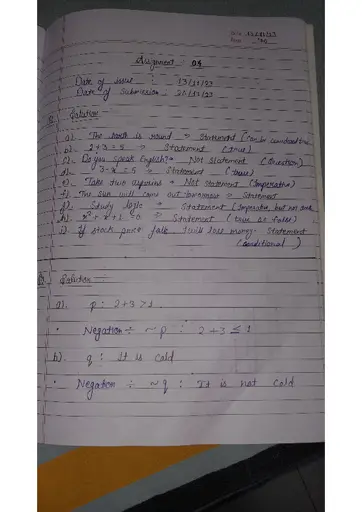 Date 13/11/23
Page
Assignment 05
Date of issue : 13/11/23
Date of Submission
Solution
a). The earth is round → Statement (can be considered true)
b). 2+3=5 → Statement (true)
c). Do you speak English? → Not Statement (Question)
d). 3-x=5 → Statement (true)
e). Take two aspirins → Not Statement (Imperative)
f). The sun will come out tomorrow → Statement
g). Study logic → Statement (Imperative, but not
h). → Statement (true or false)
i). If stock price fall I will lose money - Statement
(conditional)
Solution ÷
a). p : 2+3>1.
• Negation ÷ ~p : 2+3≤1
b). q : it is cold
• Negation ÷ ~q : It is not cold